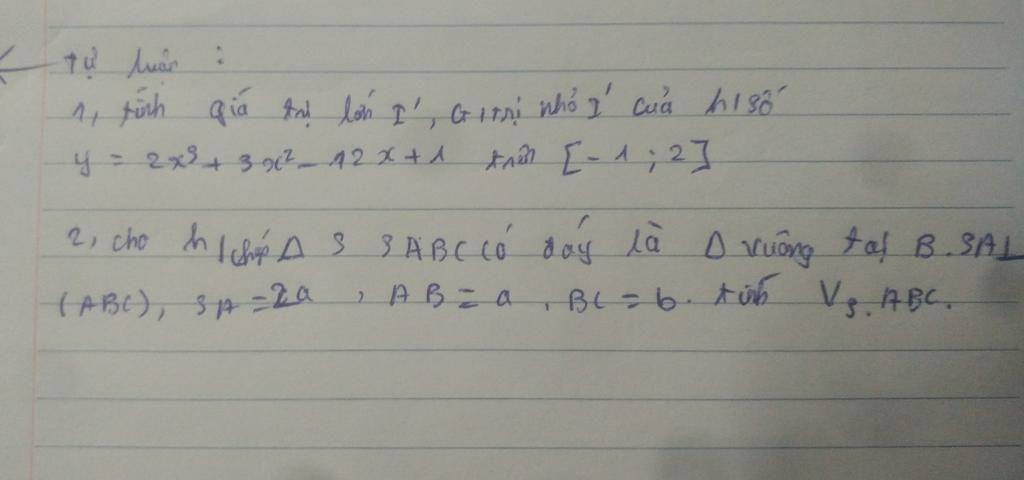 Tự luận :
1, tính giá trị lớn I', G/trị nhỏ I' của h/số
y = 2x³ + 3x² - 12x + 1 trên [-1 ; 2]
2, cho h/chóp Δ S SABC có đáy là Δ vuông tại B. SA⊥
(ABC), SA = 2a , AB = a , BC = b. tính V_S.ABC.